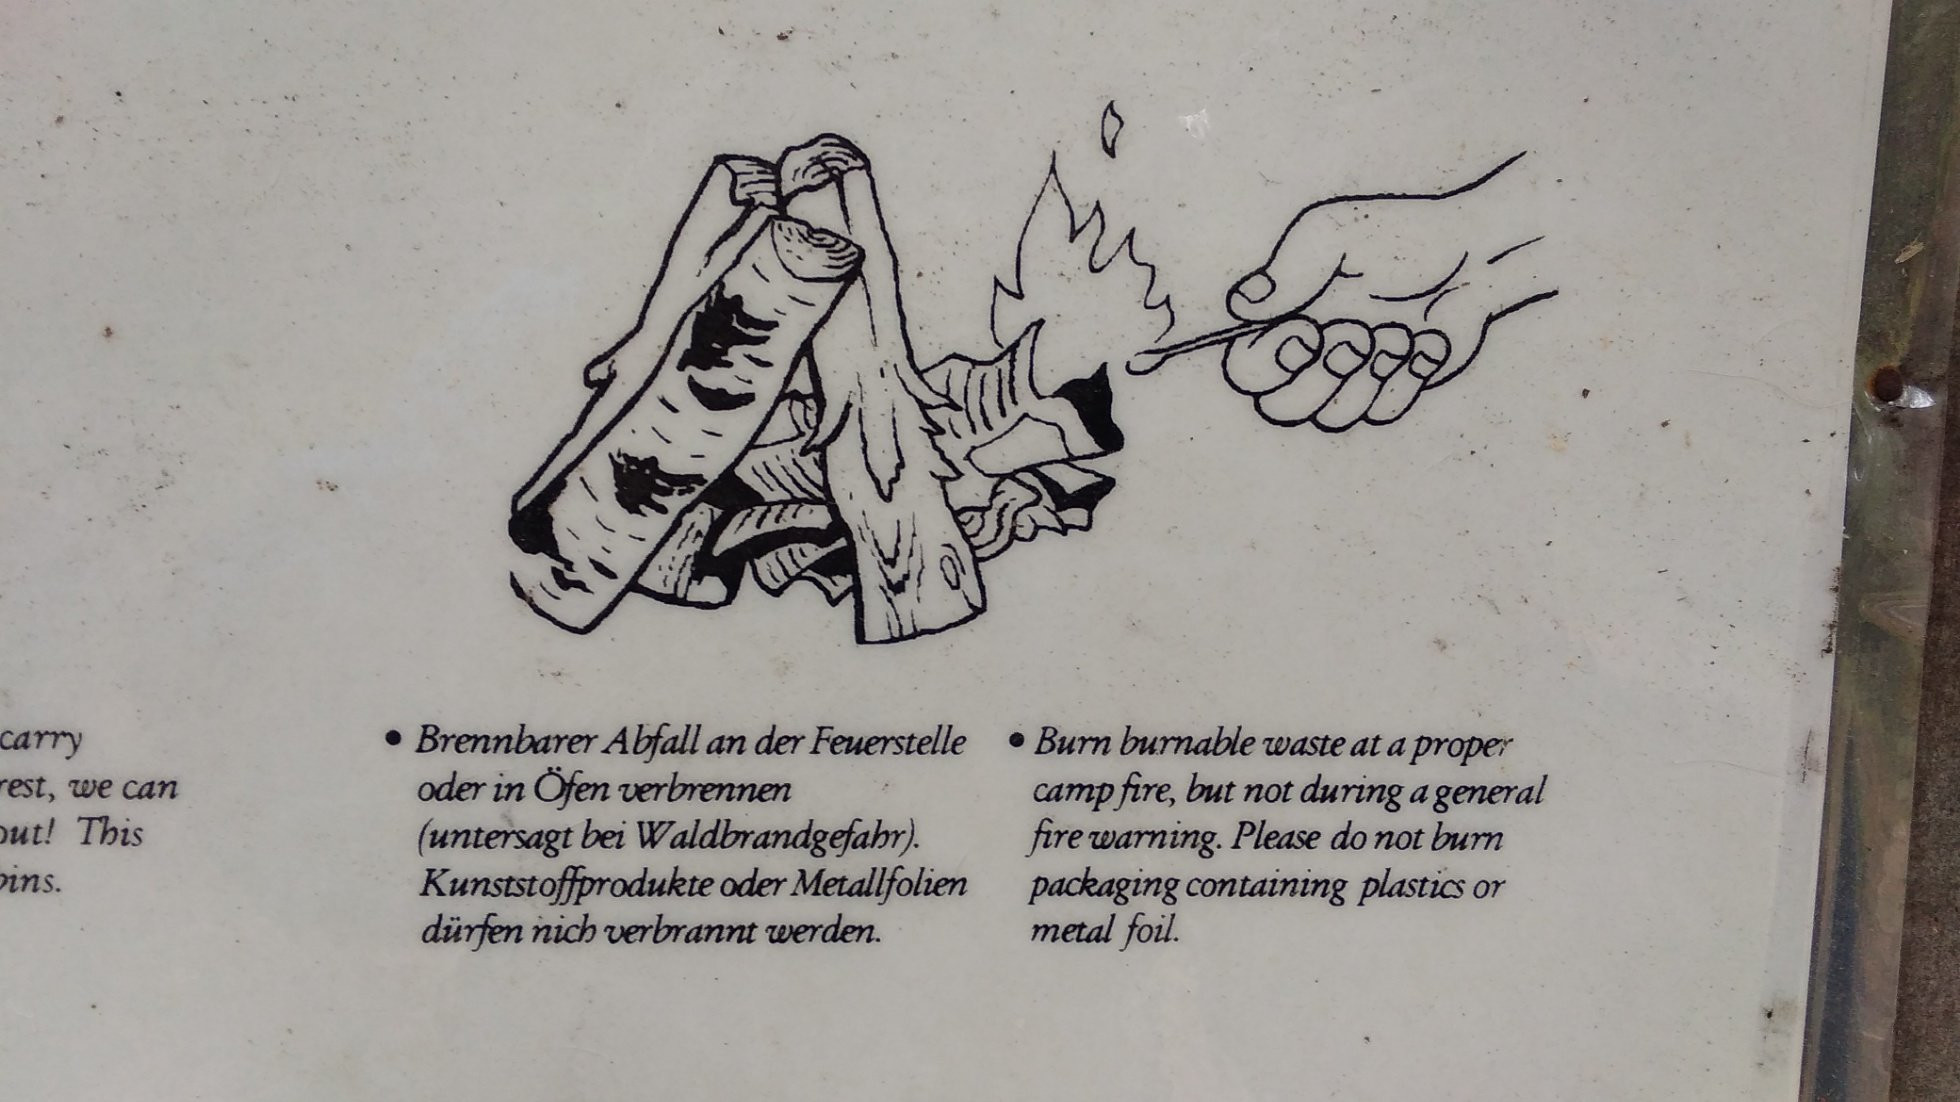 carry
rest, we can
out! This
bins.
• Brennbarer Abfall an der Feuerstelle
oder in Öfen verbrennen
(untersagt bei Waldbrandgefahr).
Kunststoffprodukte oder Metallfolien
dürfen nich verbrannt werden.
• Burn burnable waste at a proper
camp fire, but not during a general
fire warning. Please do not burn
packaging containing plastics or
metal foil.